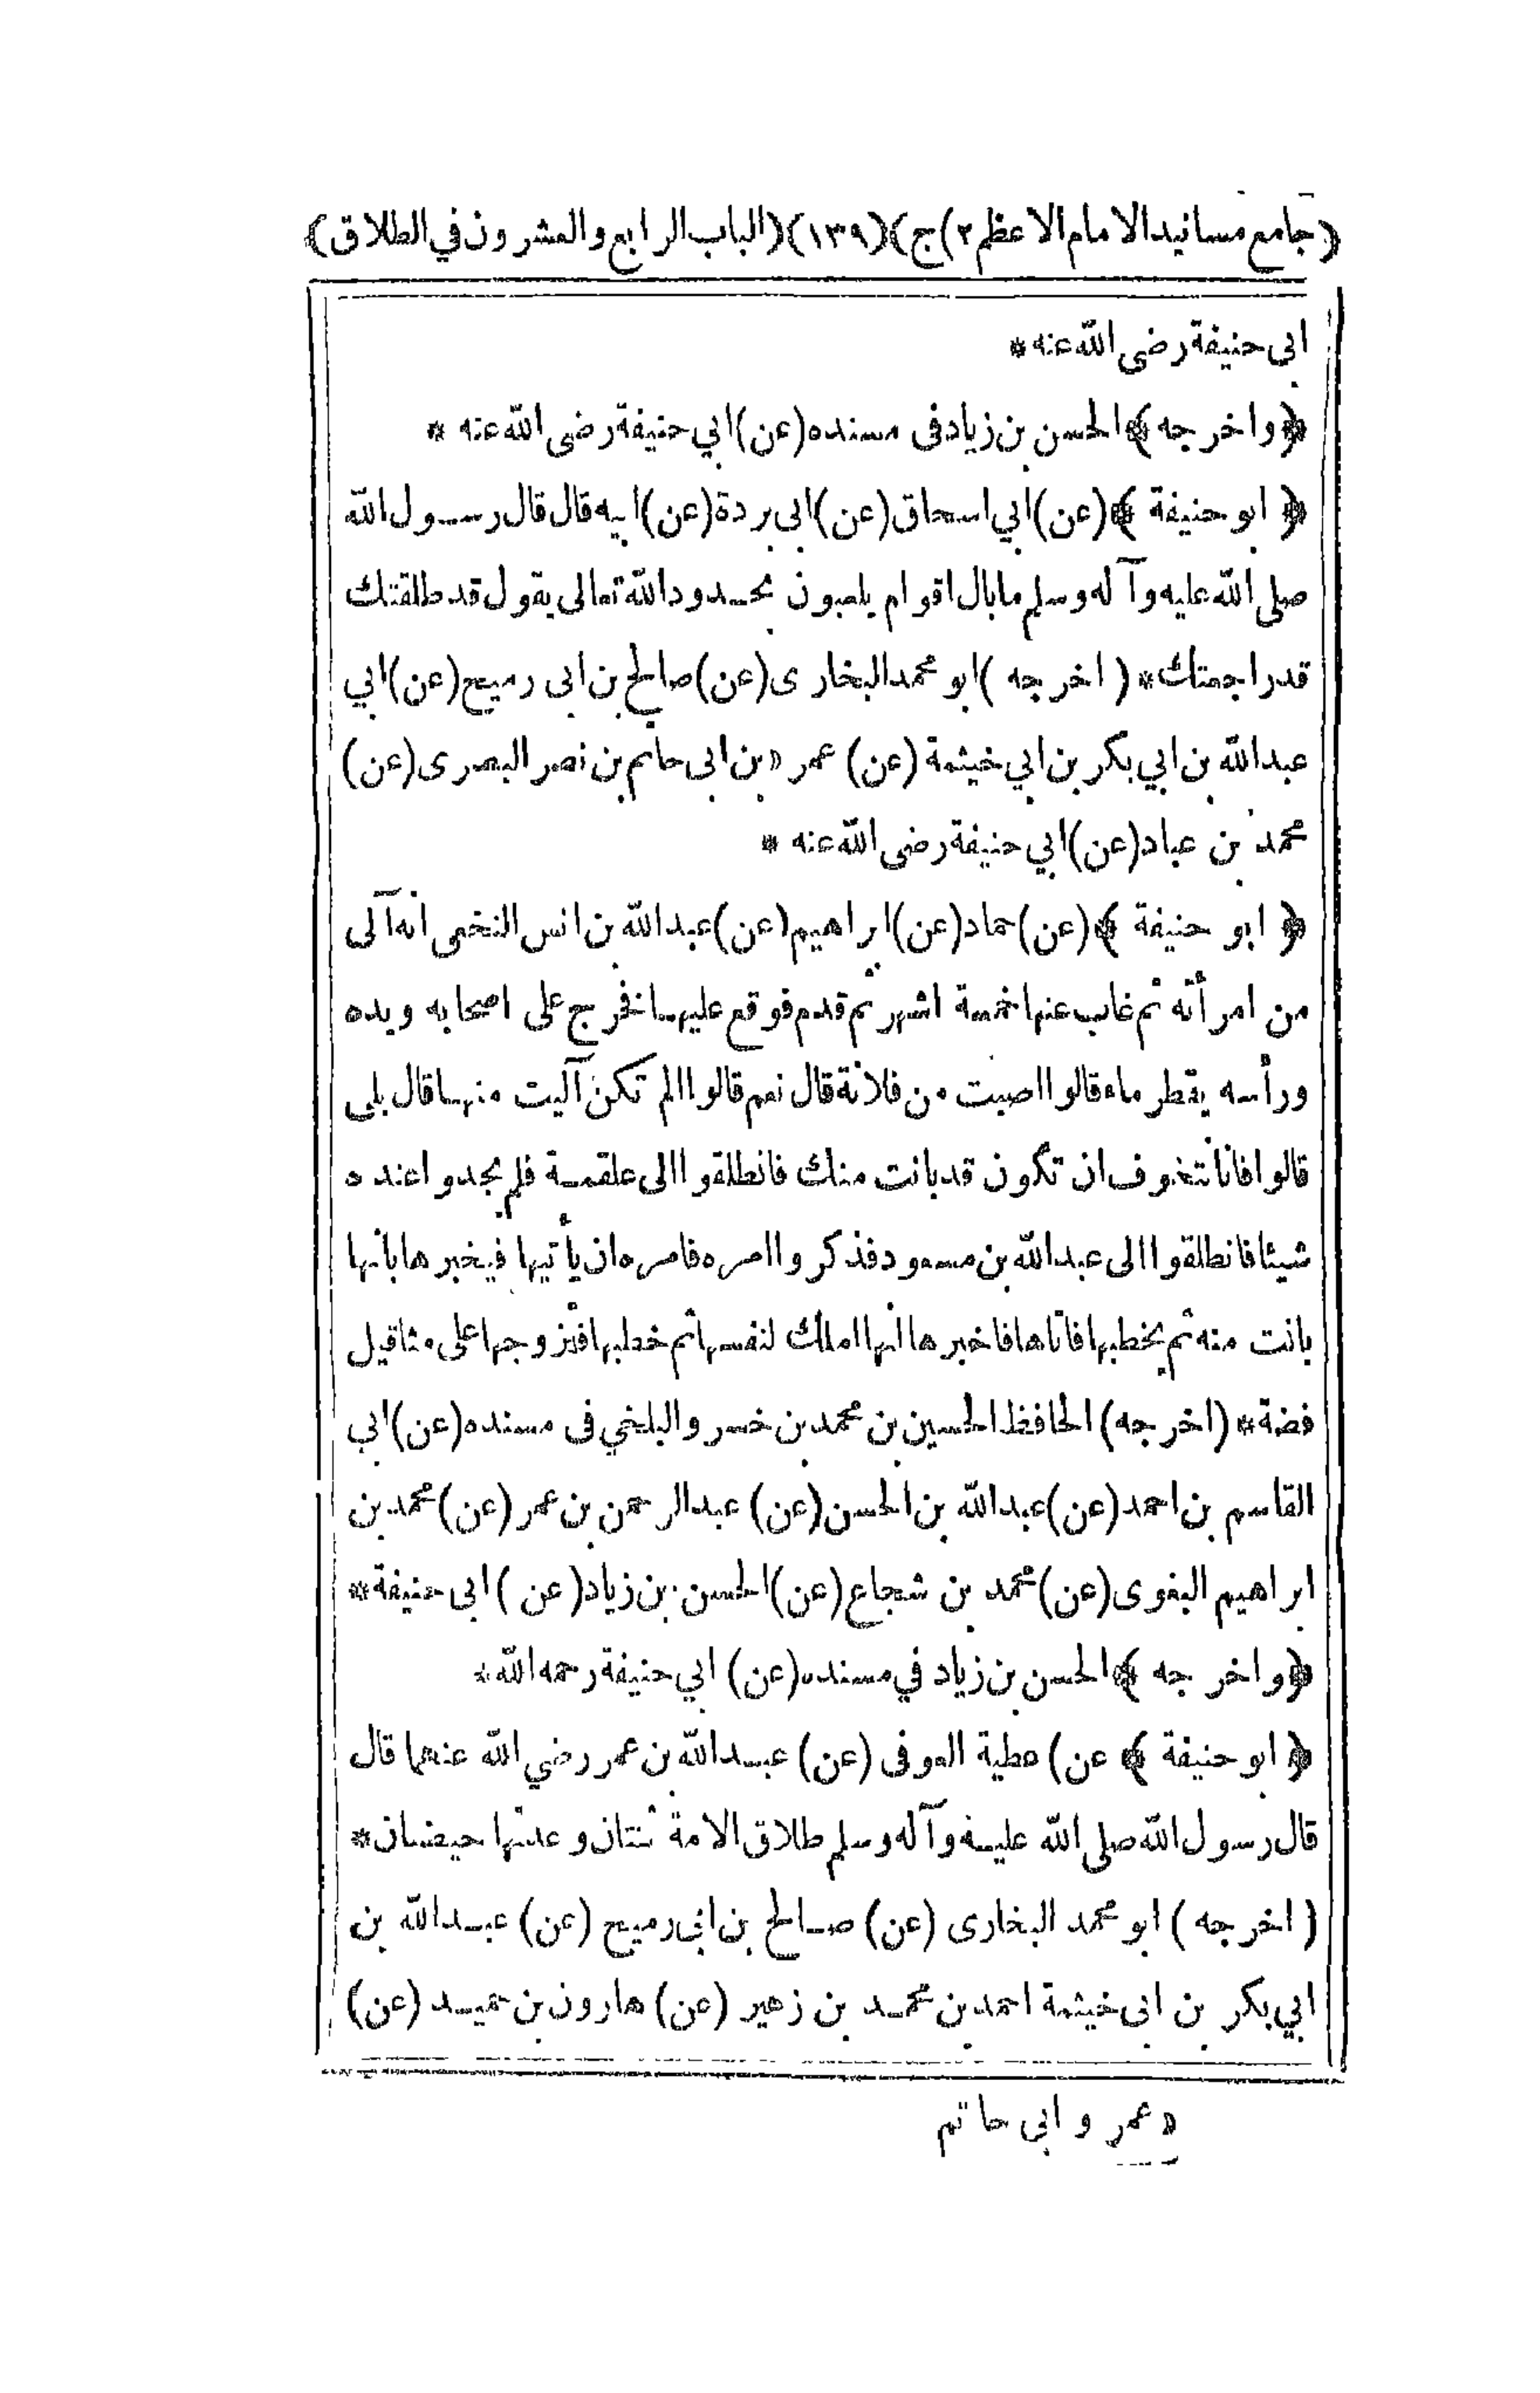 (جامع مسانيد الامام الاعظم ٢)ج)(١٣٩)(الباب الرابع والعشرون في الطلاق)
ابى حنيفة رضى الله عنه *
﴿واخرجه﴾ الحسن بن زياد فى مسنده (عن) ابي حنيفة رضى الله عنه *
﴿ابو حنيفة﴾ (عن) ابي اسحاق (عن) ابى بردة (عن) ابيه قال قال رسول الله
صلى الله عليه وآله وسلم ما بال اقوام يلعبون بحدود الله تعالى يقول قد طلقتك
قد راجعتك * (اخرجه) ابو محمد البخارى (عن) صالح بن ابى رميح (عن) ابي
عبد الله بن ابي بكر بن ابي خيثمة (عن) عمر « بن ابى حاتم بن نصر البصرى (عن)
محمد بن عباد (عن) ابي حنيفة رضى الله عنه *
﴿ابو حنيفة﴾ (عن) حماد (عن) ابراهيم (عن) عبد الله بن انس النخعى انه آلى
من امرأته ثم غاب عنها خمسة اشهر ثم قدم فوقع عليها فخرج على اصحابه ويده
ورأسه يقطر ماء قالوا اصبت من فلانة قال نعم قالوا الم تكن آليت منها قال بلى
قالوا فانا نتخوف ان تكون قد بانت منك فانطلقوا الى علقمة فلم يجدوا عنده
شيئا فانطلقوا الى عبد الله بن مسعود فذكروا امره فامره ان يأتيها فيخبرها بأنها
بانت منه ثم يخطبها فاتاها فاخبرها انها املك لنفسها ثم خطبها فتزوجها على مثاقيل
فضة * (اخرجه) الحافظ الحسين بن محمد بن خسرو البلخي فى مسنده (عن) ابي
القاسم بن احمد (عن) عبد الله بن الحسن (عن) عبد الرحمن بن عمر (عن) محمد بن
ابراهيم البغوى (عن) محمد بن شجاع (عن) الحسن بن زياد (عن) ابى حنيفة *
﴿واخرجه﴾ الحسن بن زياد في مسنده (عن) ابي حنيفة رحمه الله *
﴿ابو حنيفة﴾ عن) عطية العوفى (عن) عبد الله بن عمر رضي الله عنهما قال
قال رسول الله صلى الله عليه وآله وسلم طلاق الامة ثنتان وعدتها حيضتان *
(اخرجه) ابو محمد البخارى (عن) صالح بن ابى رميح (عن) عبد الله بن
ابي بكر بن ابى خيثمة احمد بن محمد بن زهير (عن) هارون بن حميد (عن)
« عمر و ابى حاتم